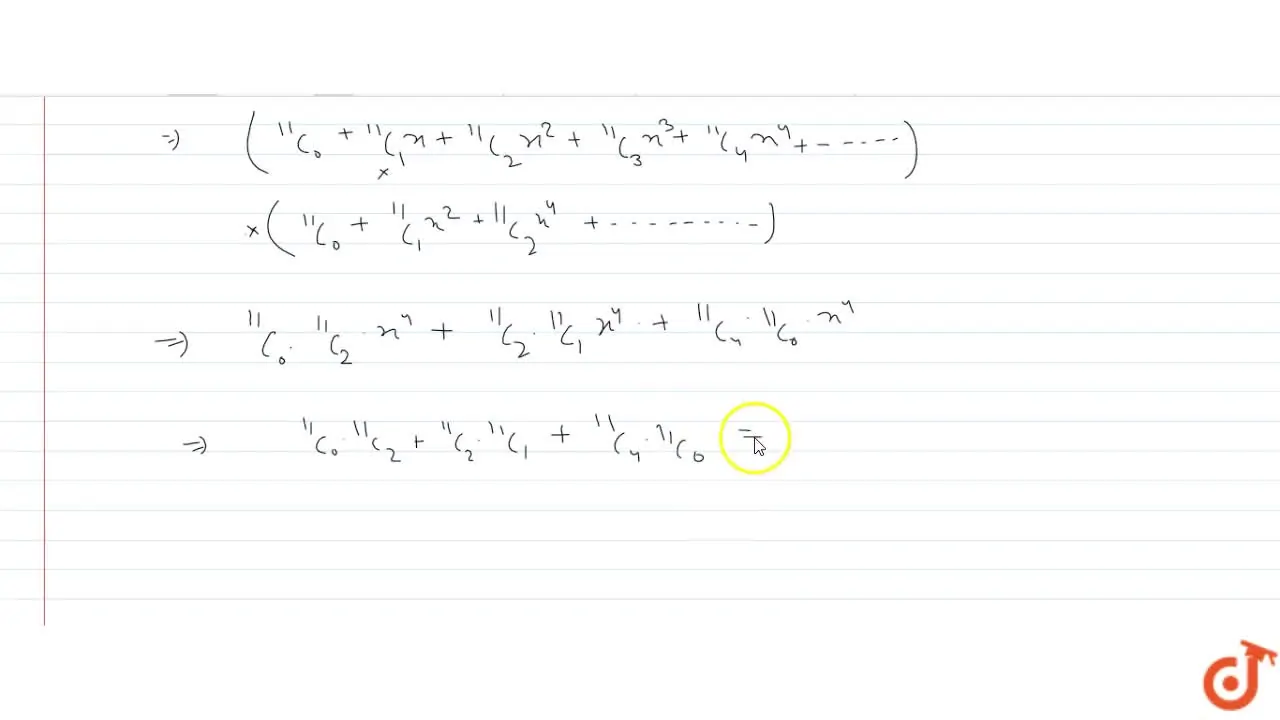 ⇒ ( ¹¹C₀ + ¹¹C₁x + ¹¹C₂x² + ¹¹C₃x³ + ¹¹C₄x⁴ + ------ )
× ( ¹¹C₀ + ¹¹C₁x² + ¹¹C₂x⁴ + --------- )
⇒ ¹¹C₀ · ¹¹C₂ · x⁴ + ¹¹C₂ · ¹¹C₁ x⁴ · + ¹¹C₄ · ¹¹C₀ · x⁴
⇒ ¹¹C₀ · ¹¹C₂ + ¹¹C₂ · ¹¹C₁ + ¹¹C₄ · ¹¹C₀ =